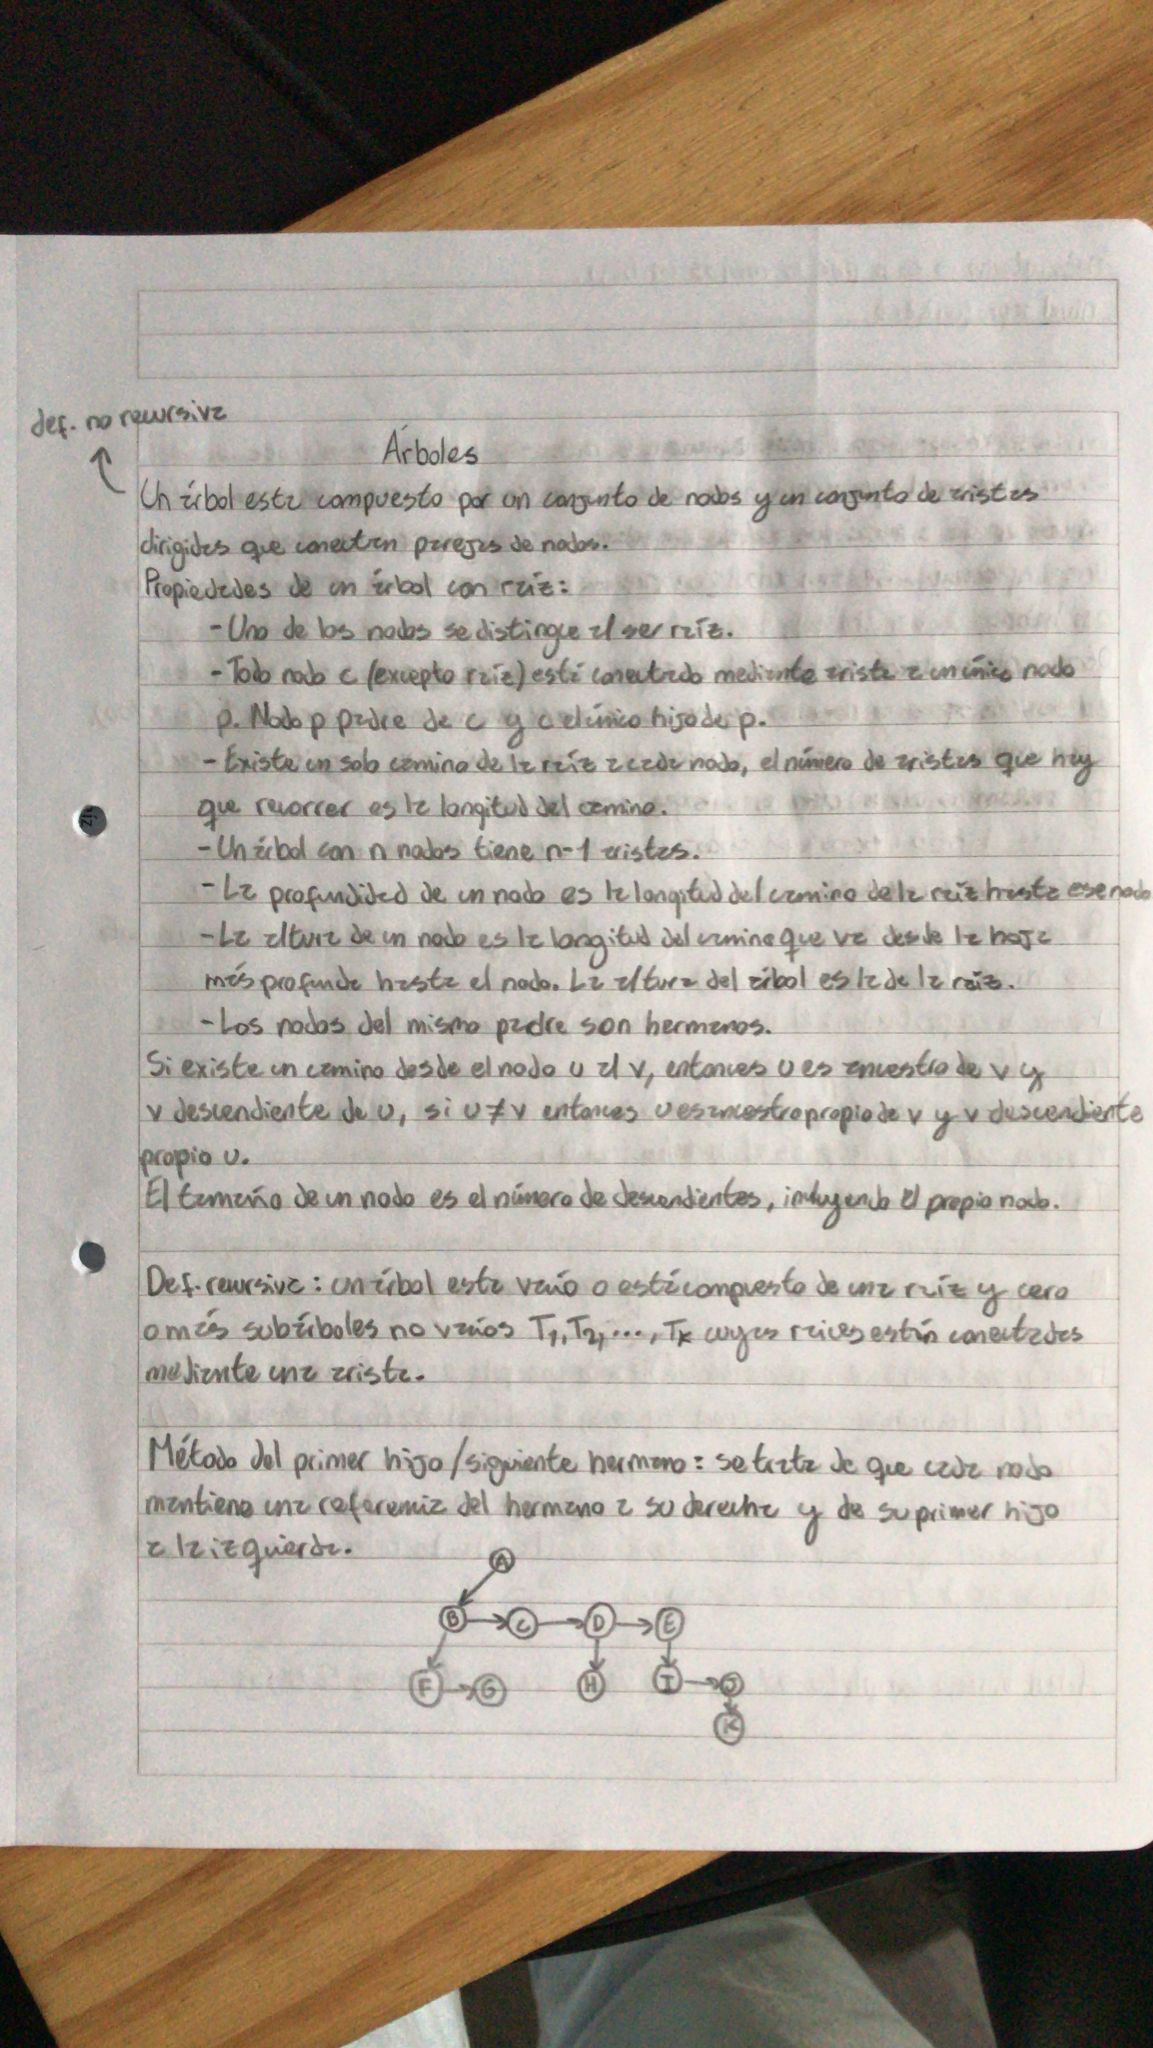 def. no recursiva
Árboles
Un árbol esta compuesto por un conjunto de nodos y un conjunto de aristas
dirigidas que conectan parejas de nodos.
Propiedades de un árbol con raíz:
- Uno de los nodos se distingue al ser raíz.
- Todo nodo c (excepto raíz) está conectado mediante arista a un único nodo
p. Nodo p padre de c y c el único hijo de p.
- Existe un solo camino de la raíz a cada nodo, el número de aristas que hay
que recorrer es la longitud del camino.
- Un árbol con n nodos tiene n-1 aristas.
- La profundidad de un nodo es la longitud del camino de la raíz hasta ese nodo
- La altura de un nodo es la longitud del camino que va desde la hoja
más profunda hasta el nodo. La altura del árbol es la de la raíz.
- Los nodos del mismo padre son hermanos.
Si existe un camino desde el nodo u al v, entonces u es ancestro de v y
v descendiente de u, si u ≠ v entonces u es ancestro propio de v y v descendiente
propio u.
El tamaño de un nodo es el número de descendientes, incluyendo el propio nodo.
Def. recursiva: un árbol esta vacío o está compuesto de una raíz y cero
o más subárboles no vacíos T1, T2, ..., Tk cuyas raices están conectadas
mediante una arista.
Método del primer hijo/siguiente hermano: se trata de que cada nodo
mantiene una referencia del hermano a su derecha y de su primer hijo
a la izquierda.
A
B C D E
F G H I J
K